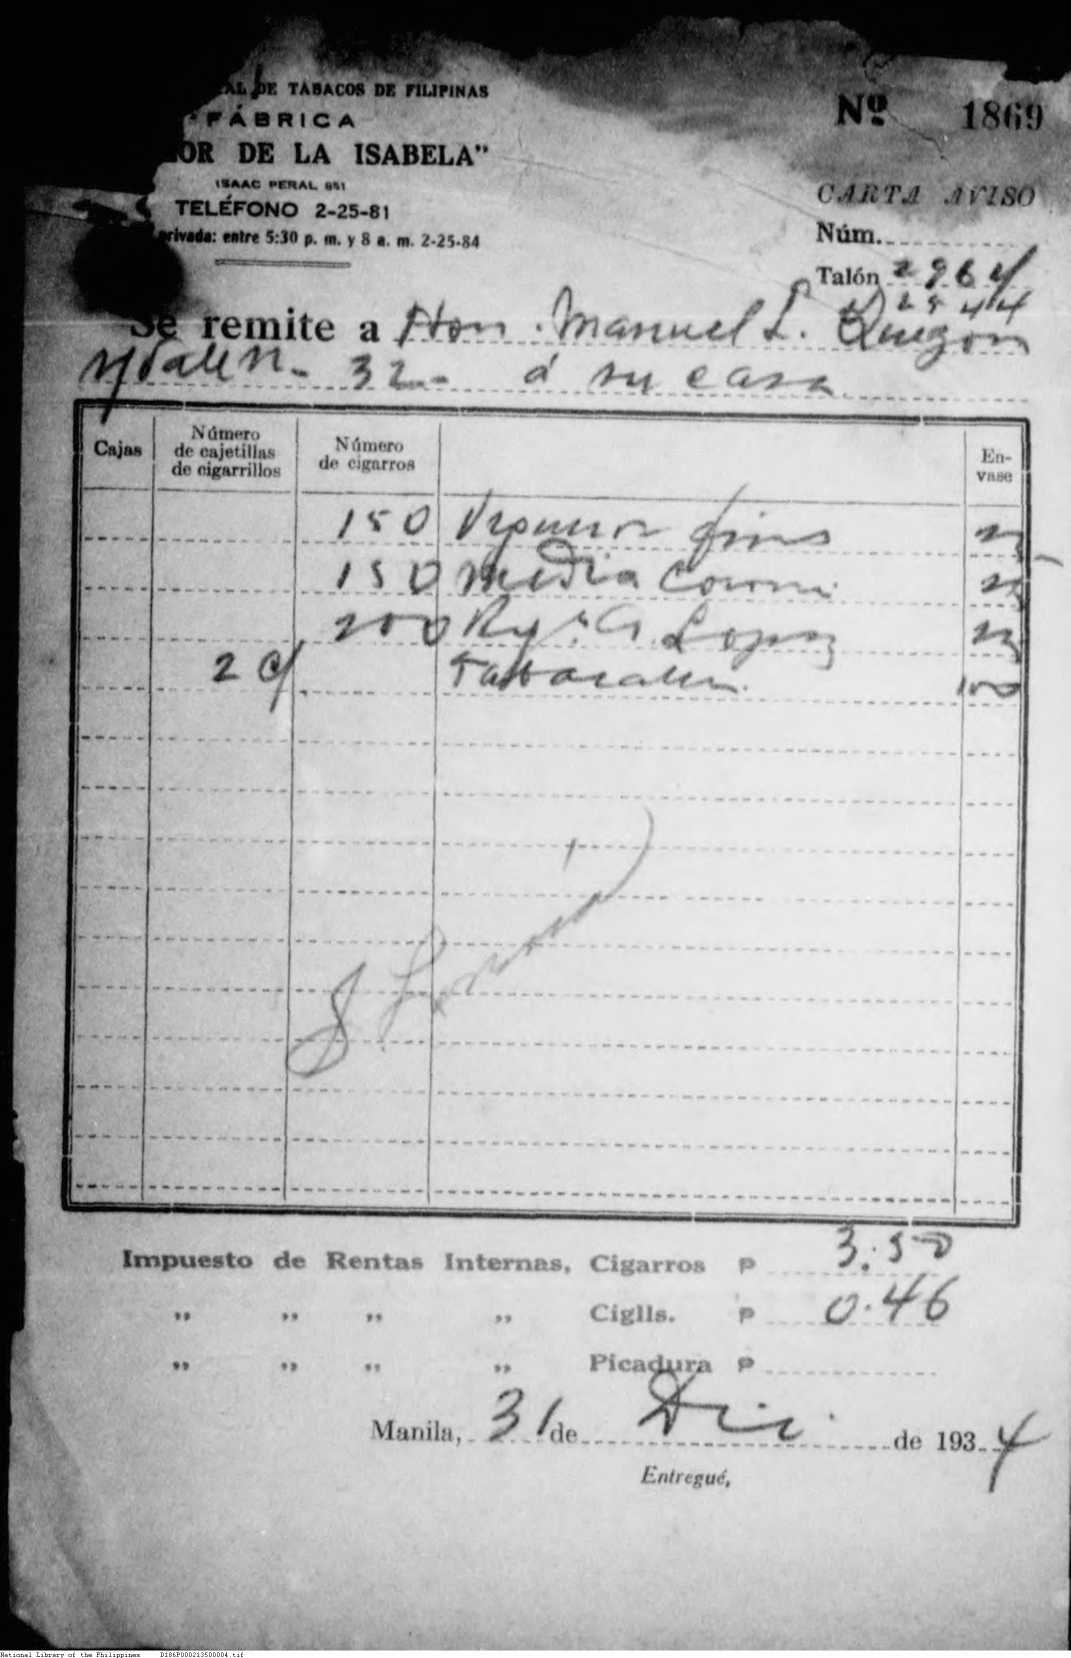 DE TABACOS DE FILIPINAS
FÁBRICA
DE LA ISABELA"
ISAAC PERAL 651
TELÉFONO 2-25-81
privada: entre 5:30 p. m. y 8 a. m. 2-25-84
Nº 1869
CARTA AVISO
Núm.
Talón 2964
2944
Se remite a Hon. Manuel L. Quezon
32- á su casa
Cajas
Número de cajetillas de cigarrillos
Número de cigarros
En-vase
150 finos
150 Media Corona
200 G. Lopez
2 c/ Tabacalera 100
Impuesto de Rentas Internas, Cigarros ₱ 3.50
" " " " Ciglls. ₱ 0.46
" " " " Picadura ₱
Manila, 31 de Dic. de 1934
Entregué,
National Library of the Philippines D186P000213500004.tif